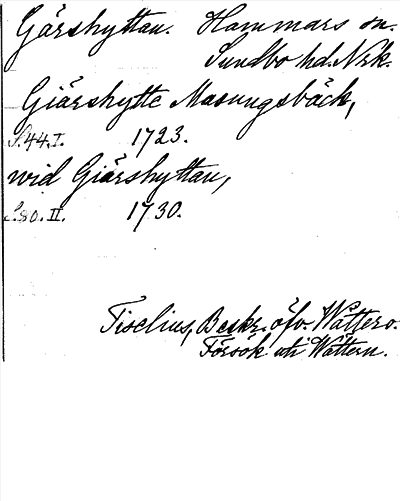 Gärshyttan. Hammars sn.
Sundbo hd. Nrk.
Giärshytte Masungsbäck,
S.44.I. 1723.
wid Giärshyttan,
S.80.II. 1730.
Tiselius, Beskr. öfv. Wätter o.
Försök uti Wättern.